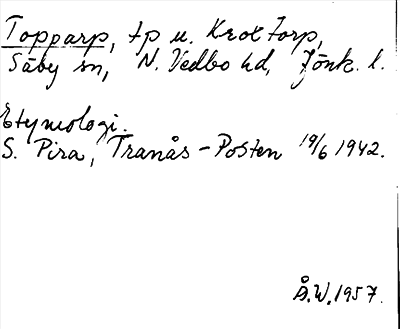 Topparp, tp u. Krokstorp,
Säby sn, N. Vedbo hd, Jönk. l.
Etymologi.
S. Pira, Tranås-Posten 19/6 1942.
Å.W. 1957.